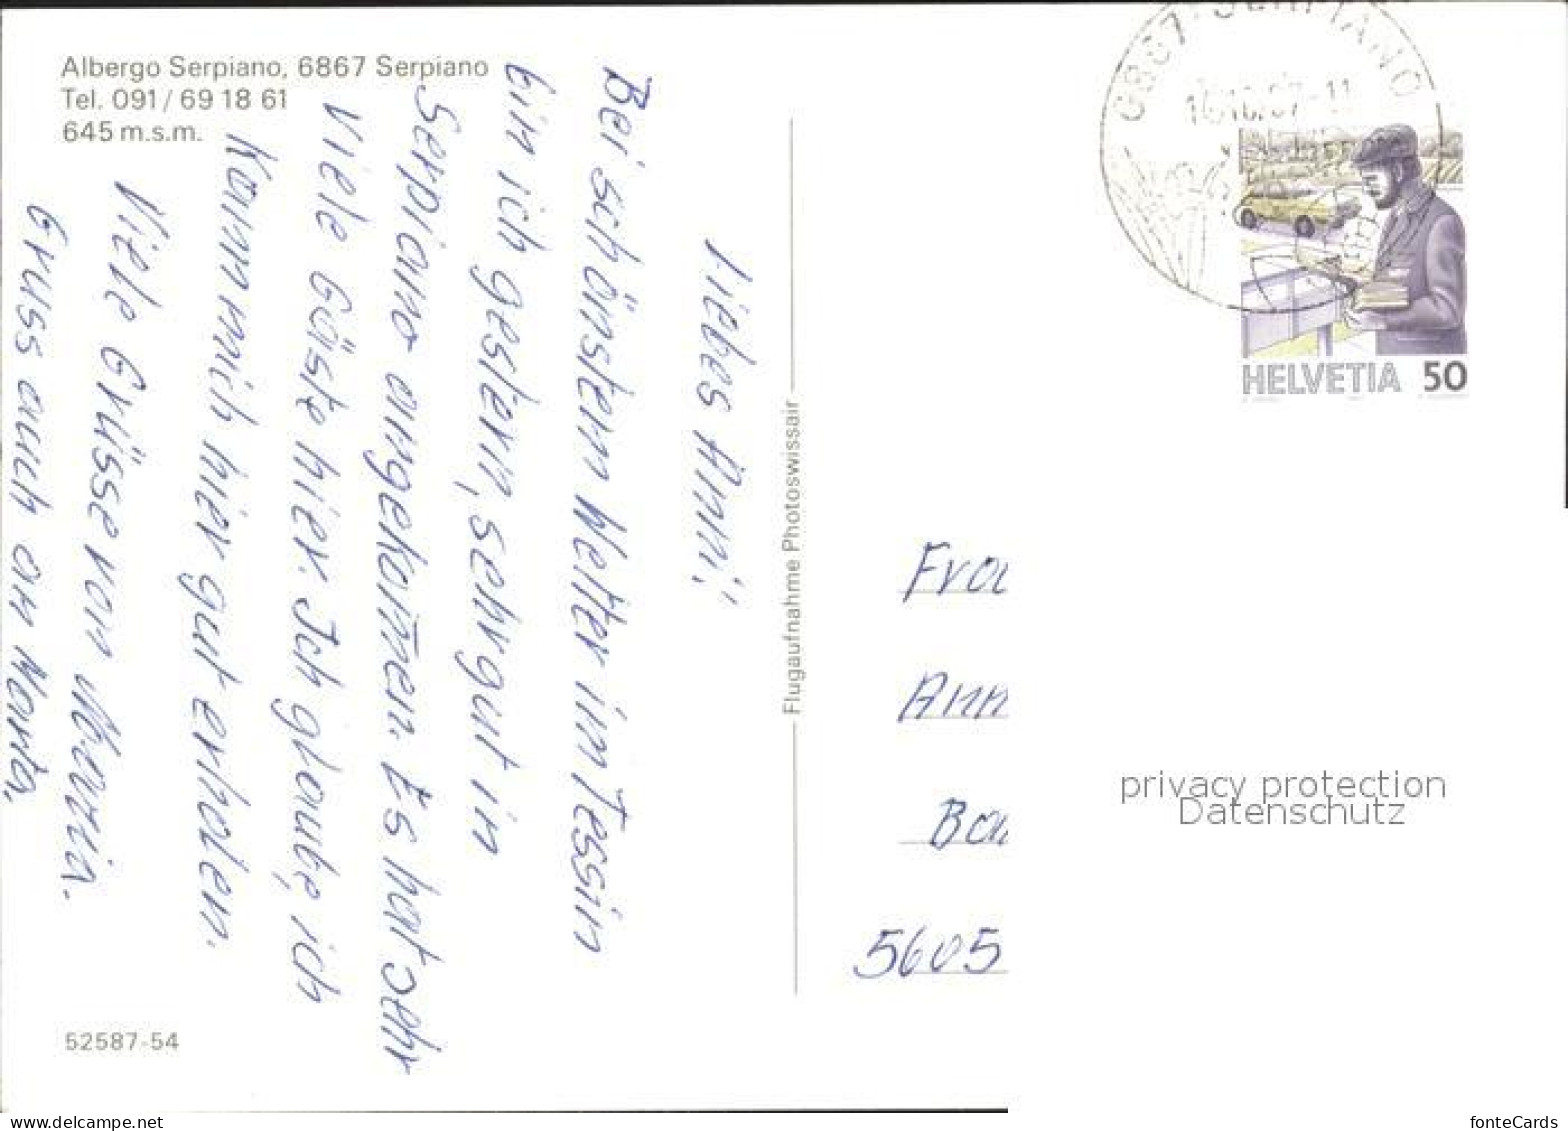 Albergo Serpiano, 6867 Serpiano
Tel. 091/69 18 61
645 m.s.m.
Liebes Anni!
Bei schönstem Wetter im Tessin
bin ich gestern, sehr gut in
Serpiano angekom̄en. Es hat sehr
Viele Gäste hier. Ich glaube, ich
Kann mich hier gut erholen.
Viele Grüsse von Maria.
Gruss auch an Marta.
52587-54
Flugaufnahme Photoswissair
6867 SERPIANO
HELVETIA 50
Frau
Ann
5605
privacy protection
Datenschutz
www.delcampe.net
fonteCards